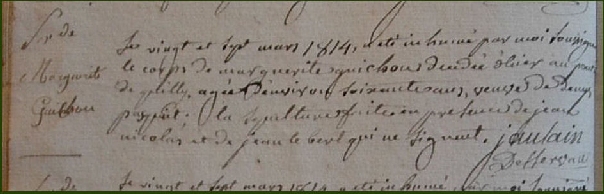 Sre de
Marguerite
Guichou
Le vingt et sept mars 1814, a eté inhumé par moi soussigné
le corps de marguerite guichou decedée hier au
de agée d'environ soixante ans, veuve de
la sepulture faite en presence de jean
nicolas et de jean le bert qui ne signent. jaulain
Desservant
Le vingt et sept mars 1814 a eté inhumé par moi soussigné